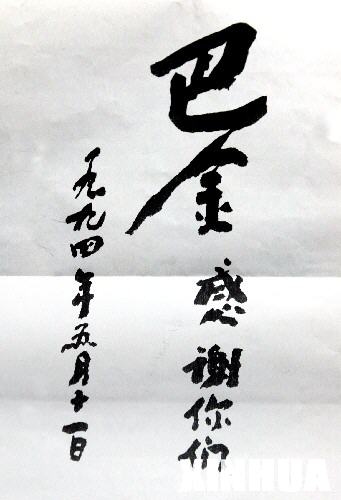 巴金
感谢你们
一九九四年五月十一日
XINHUA